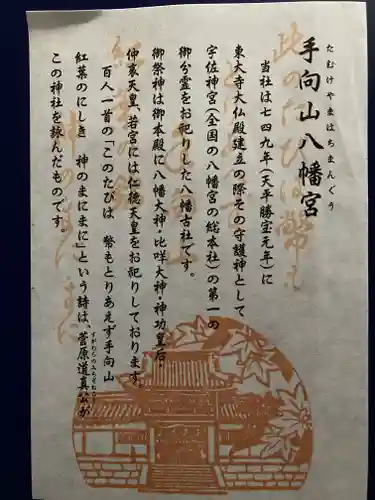 手向山八幡宮
たむけやまはちまんぐう
当社は七四九年(天平勝宝元年)に
東大寺大仏殿建立の際その守護神として
宇佐神宮(全国の八幡宮の総本社)の第一の
御分霊をお祀りした八幡古社です。
御祭神は御本殿に八幡大神・比咩大神・神功皇后・
仲哀天皇、若宮には仁徳天皇をお祀りしております。
百人一首の「このたびは 幣もとりあえず手向山
紅葉のにしき 神のまにまに」という詩は、菅原道真公が
すがわらのみちざねこう
この神社を詠んだものです。